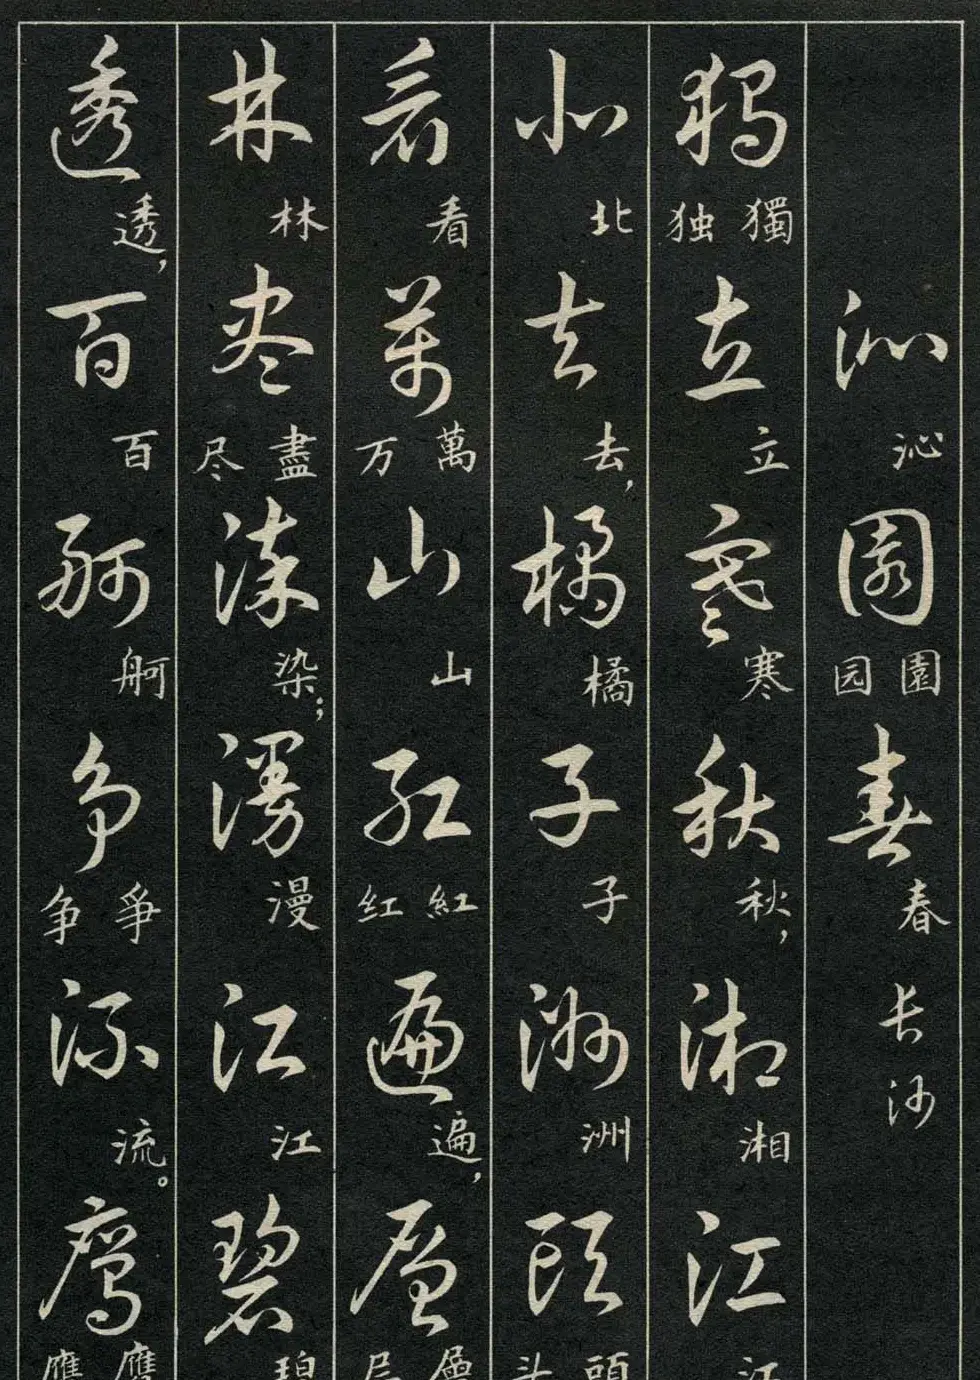 沁 沁 園 園 园 春 春 长沙
獨 獨 独 立 立 寒 寒 秋 秋， 湘 湘 江 江
北 北 去 去， 橘 橘 子 子 洲 洲 頭 頭 头
看 看 萬 萬 万 山 山 红 紅 红 遍 遍， 層 層 层
林 林 尽 盡 尽 染 染； 漫 漫 江 江 碧 碧
透 透， 百 百 舸 舸 争 爭 争 流 流。 鹰 鷹 鹰